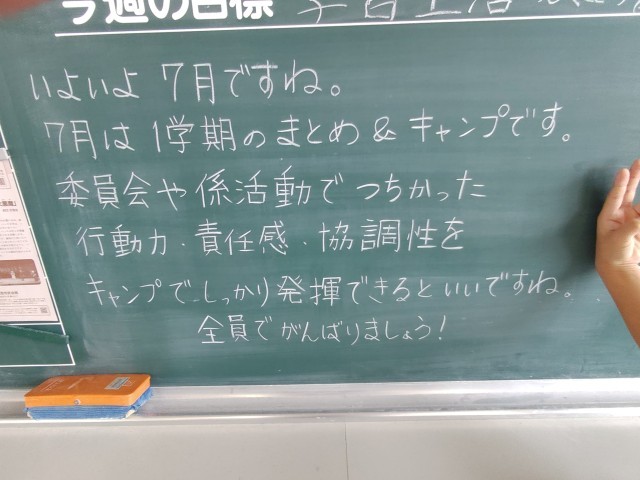 今週の目標 学習生活
いよいよ 7月ですね。
7月は 1学期のまとめ & キャンプです。
委員会や係活動で つちかった
行動力・責任感・協調性を
キャンプで しっかり発揮できるといいですね。
全員で がんばりましょう!